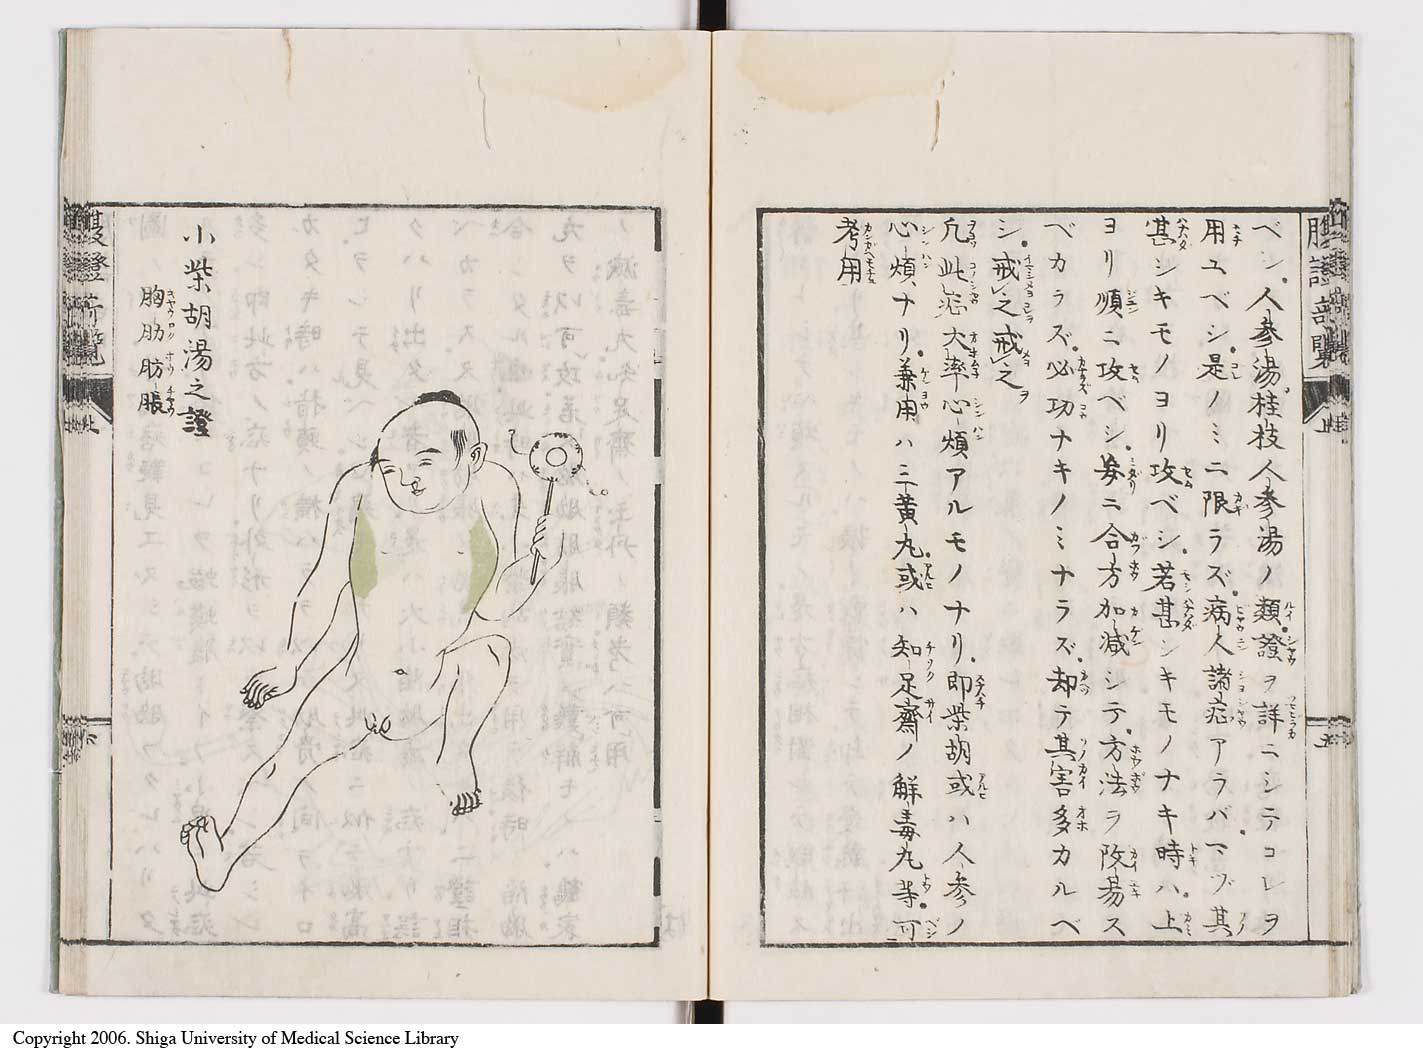 腹證奇覽
上
五
ベシ人參湯桂枝人參湯ノ類證ヲ詳ニシテコレヲ
用ユベシ是ノミニ限ラズ病人諸症アラバマヅ其
甚シキモノヨリ攻ベシ若甚シキモノナキ時ハ上
ヨリ順ニ攻ベシ妄ニ合方加減シテ方法ヲ改易ス
ベカラズ必功ナキノミナラズ却テ其害多カルベ
シ戒之戒之
凡此症大率心煩アルモノナリ即柴胡或ハ人參ノ
心煩ナリ兼用ハ三黄丸或ハ知足齋ノ解毒丸等可
考用
小柴胡湯之證
胸肋肪脹
Copyright 2006. Shiga University of Medical Science Library